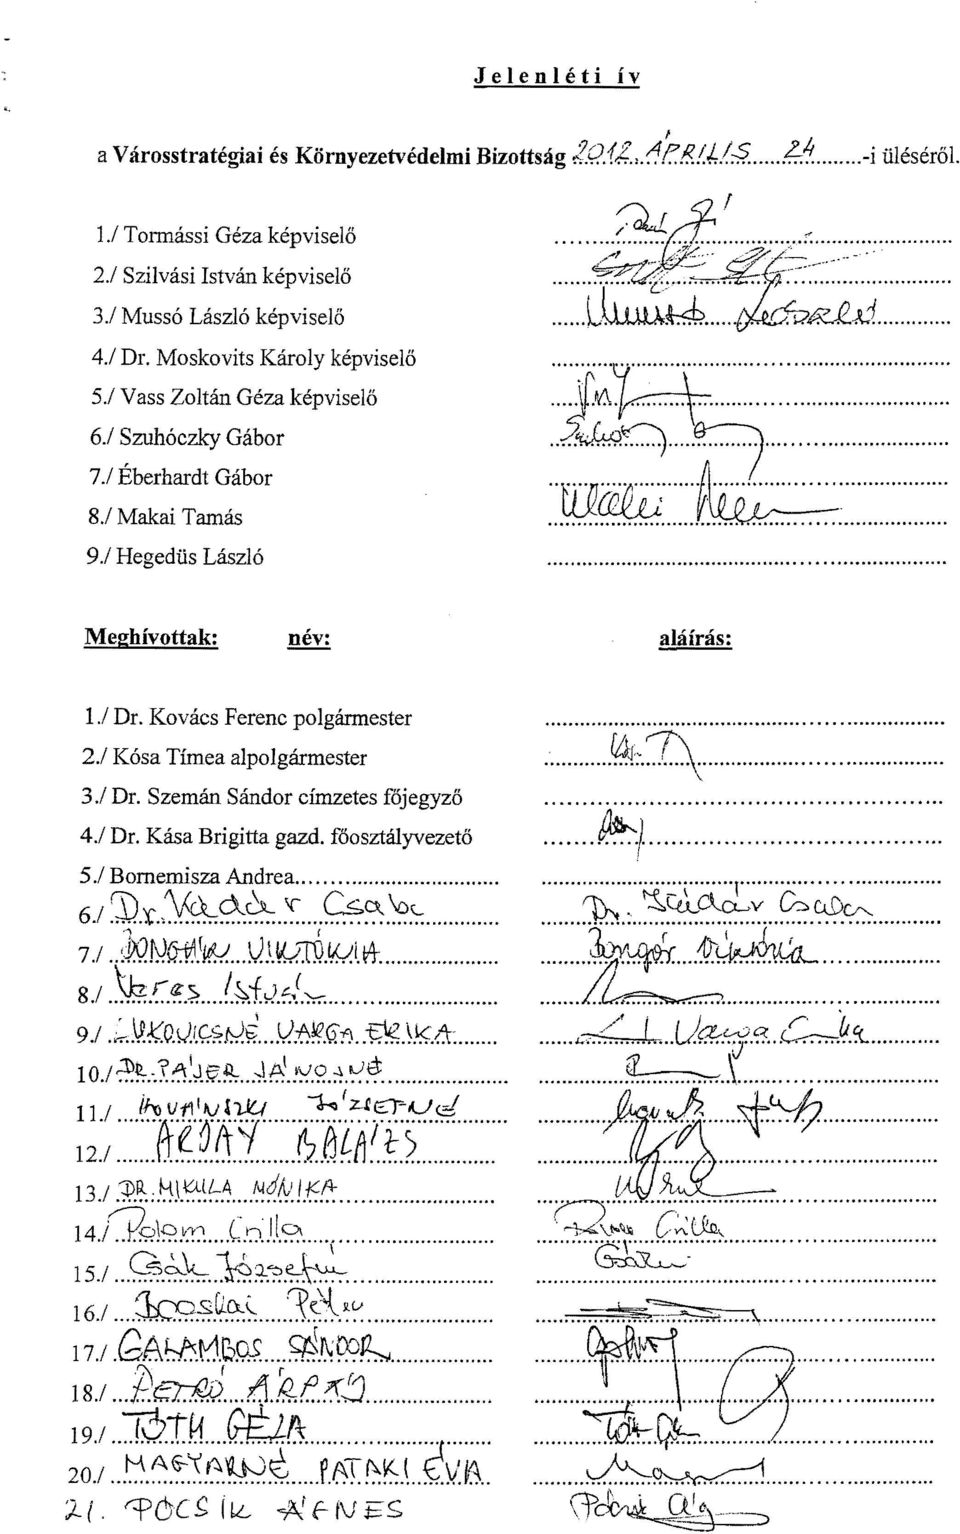 Jelenléti ív
a Városstratégiai és Környezetvédelmi Bizottság 2012. ÁPRILIS 24 -i üléséről.
1./ Tormássi Géza képviselő
2./ Szilvási István képviselő
3./ Mussó László képviselő Mussó László
4./ Dr. Moskovits Károly képviselő
5./ Vass Zoltán Géza képviselő
6./ Szuhóczky Gábor
7./ Éberhardt Gábor
8./ Makai Tamás
9./ Hegedüs László
Meghívottak: név: aláírás:
1./ Dr. Kovács Ferenc polgármester
2./ Kósa Tímea alpolgármester
3./ Dr. Szemán Sándor címzetes főjegyző
4./ Dr. Kása Brigitta gazd. főosztályvezető
5./ Bornemisza Andrea
6./ Dr. Kádár Csaba Dr. Kádár Csaba
7./ VIKTÓRIA Viktória
8./ Veres István
9./ VARGA ERIKA Varga Erika
10./ DR. PÁJER JÁNOSNÉ
11./ JÓZSEFNÉ
12./ ÁRDAY BALÁZS
13./ DR. MIKULA MÓNIKA
14./ Polom Csilla Csilla
15./ Csák Józsefné
16./ Bocskai Péter
17./ GALAMBOS SÁNDOR
18./ PETRÓ ÁRPÁD
19./ TÓTH GÉZA
20./ MAGYARNÉ PATAKI ÉVA
21. PÓCSIK ÁGNES